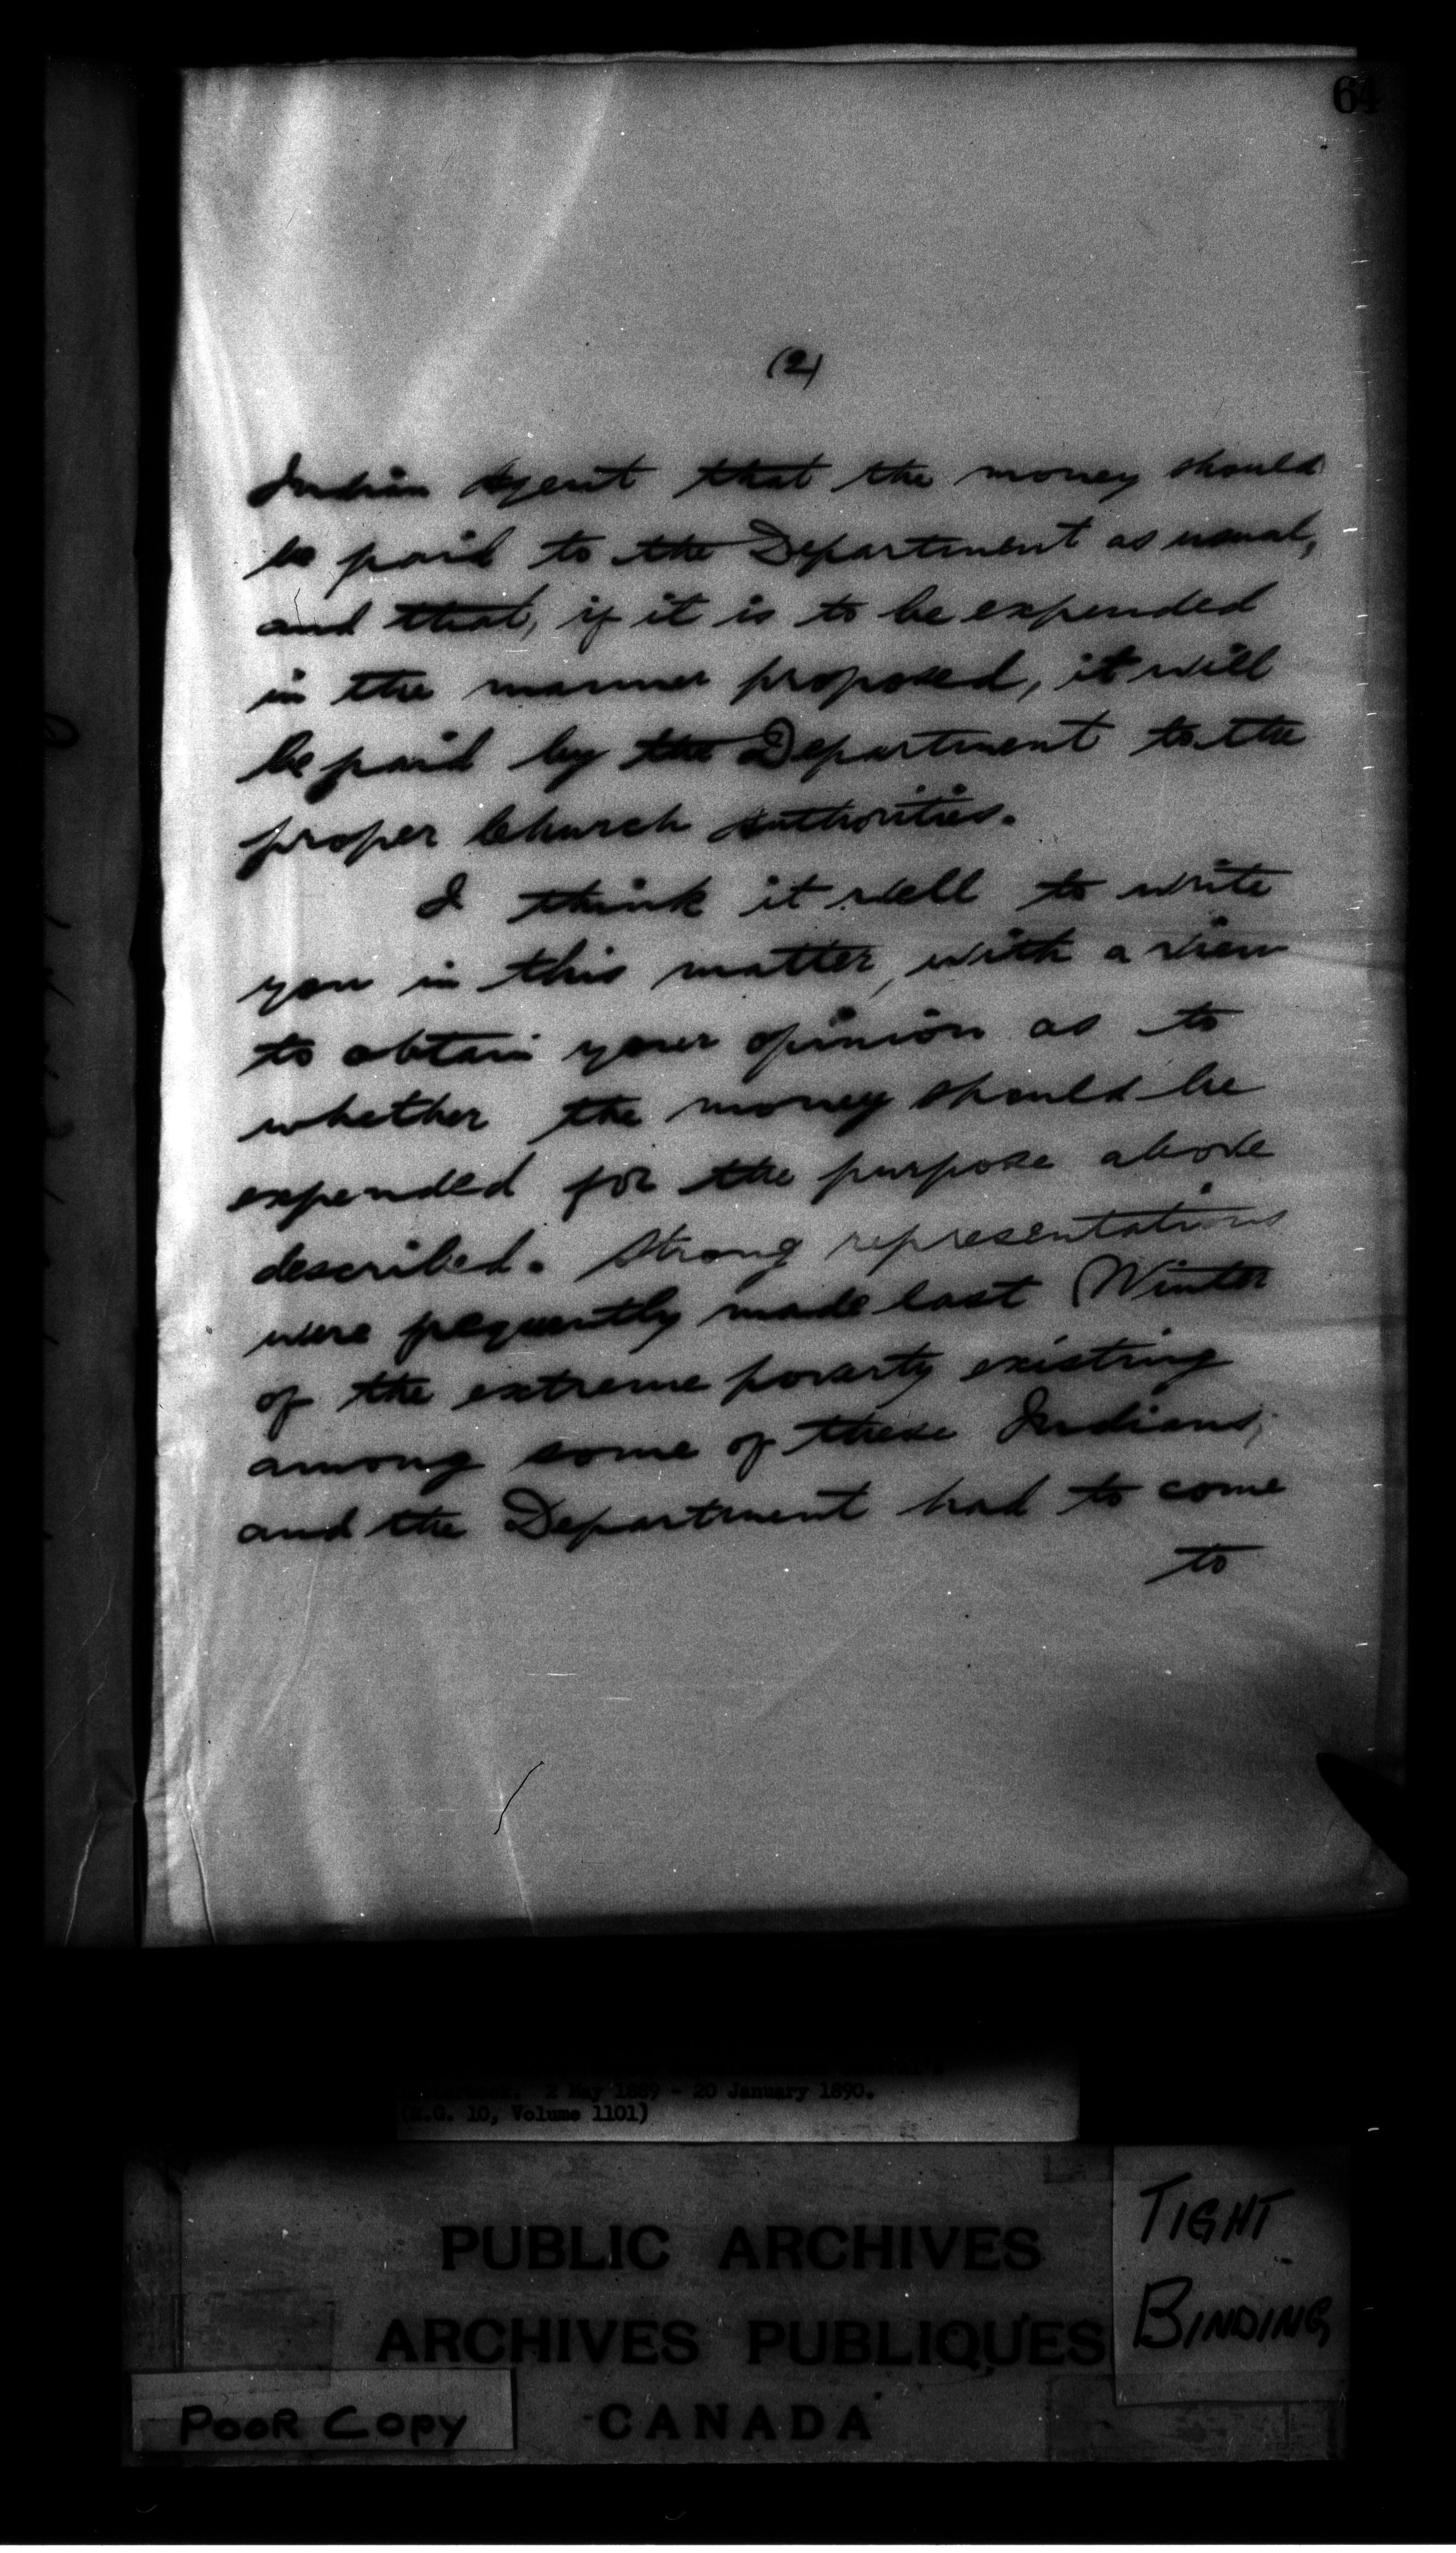 64
(2)
Indian Agent that the money should
be paid to the Department as usual,
and that, if it is to be expended
in the manner proposed, it will
be paid by the Department to the
proper Church Authorities.
I think it well to write
you in this matter, with a view
to obtain your opinion as to
whether the money should be
expended for the purpose above
described. Strong representations
were frequently made last Winter
of the extreme poverty existing
among some of these Indians,
and the Department had to come
to
2 May 1889 - 20 January 1890.
(R.G. 10, Volume 1101)
PUBLIC ARCHIVES
ARCHIVES PUBLIQUES
CANADA
TIGHT
BINDING
POOR COPY